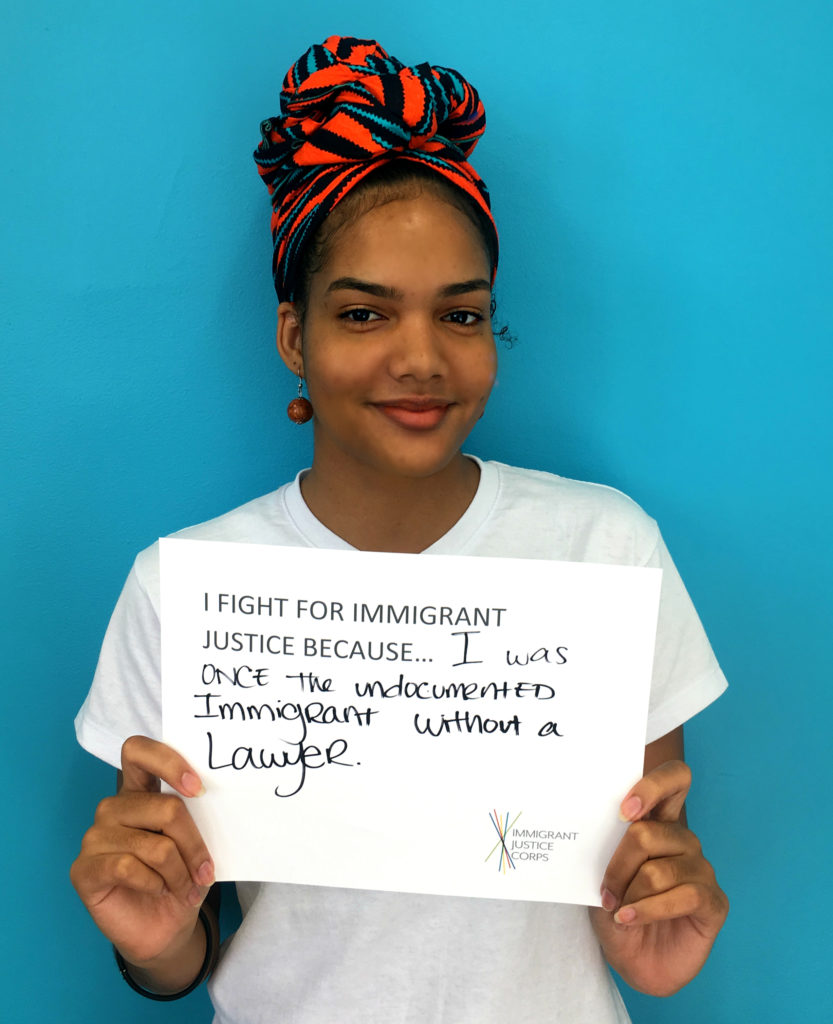 I FIGHT FOR IMMIGRANT
JUSTICE BECAUSE... I was
ONCE The undocumentED
ImmigRant without a
LawyeR.
IMMIGRANT
JUSTICE
CORPS